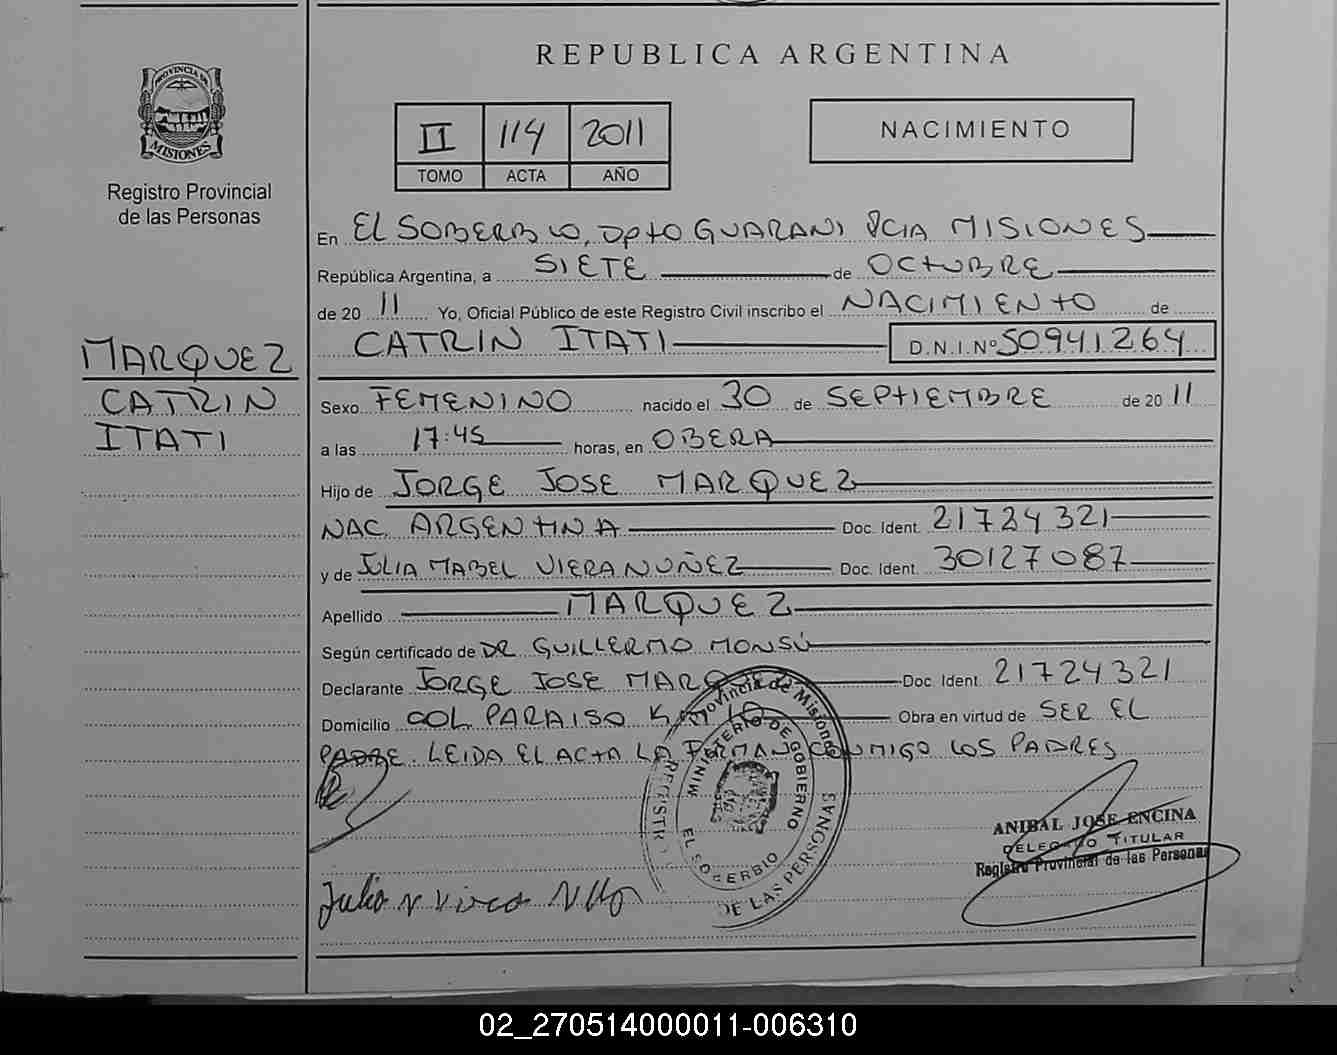 REPUBLICA ARGENTINA
PROVINCIA DE
MISIONES
Registro Provincial
de las Personas
II 114 2011
TOMO ACTA AÑO
NACIMIENTO
En EL SOBERBIO, Dpto GUARANI PCIA MISIONES
República Argentina, a SIETE de OCTUBRE
de 20 11 Yo, Oficial Público de este Registro Civil inscribo el NACIMIENTO de
CATRIN ITATI D.N.I.Nº 50941264
MARQUEZ
CATRIN
ITATI
Sexo FEMENINO nacido el 30 de SEPTIEMBRE de 20 11
a las 17:45 horas, en OBERA
Hijo de JORGE JOSE MARQUEZ
NAC. ARGENTINA Doc. Ident. 21724321
y de JULIA MABEL VIERA NUÑEZ Doc. Ident. 30127087
Apellido MARQUEZ
Según certificado de DR GUILLERMO MONSÚ
Declarante JORGE JOSE MARQUEZ Doc. Ident. 21724321
Domicilio COL PARAISO Obra en virtud de SER EL
PADRE. LEIDA EL ACTA LA FIRMAN CONMIGO LOS PADRES
Provincia de Misiones
MINISTERIO DE GOBIERNO
EL SOBERBIO
DE LAS PERSONAS
ANIBAL JOSE ENCINA
DELEGADO TITULAR
Registro Provincial de las Personas
Julia
02_270514000011-006310